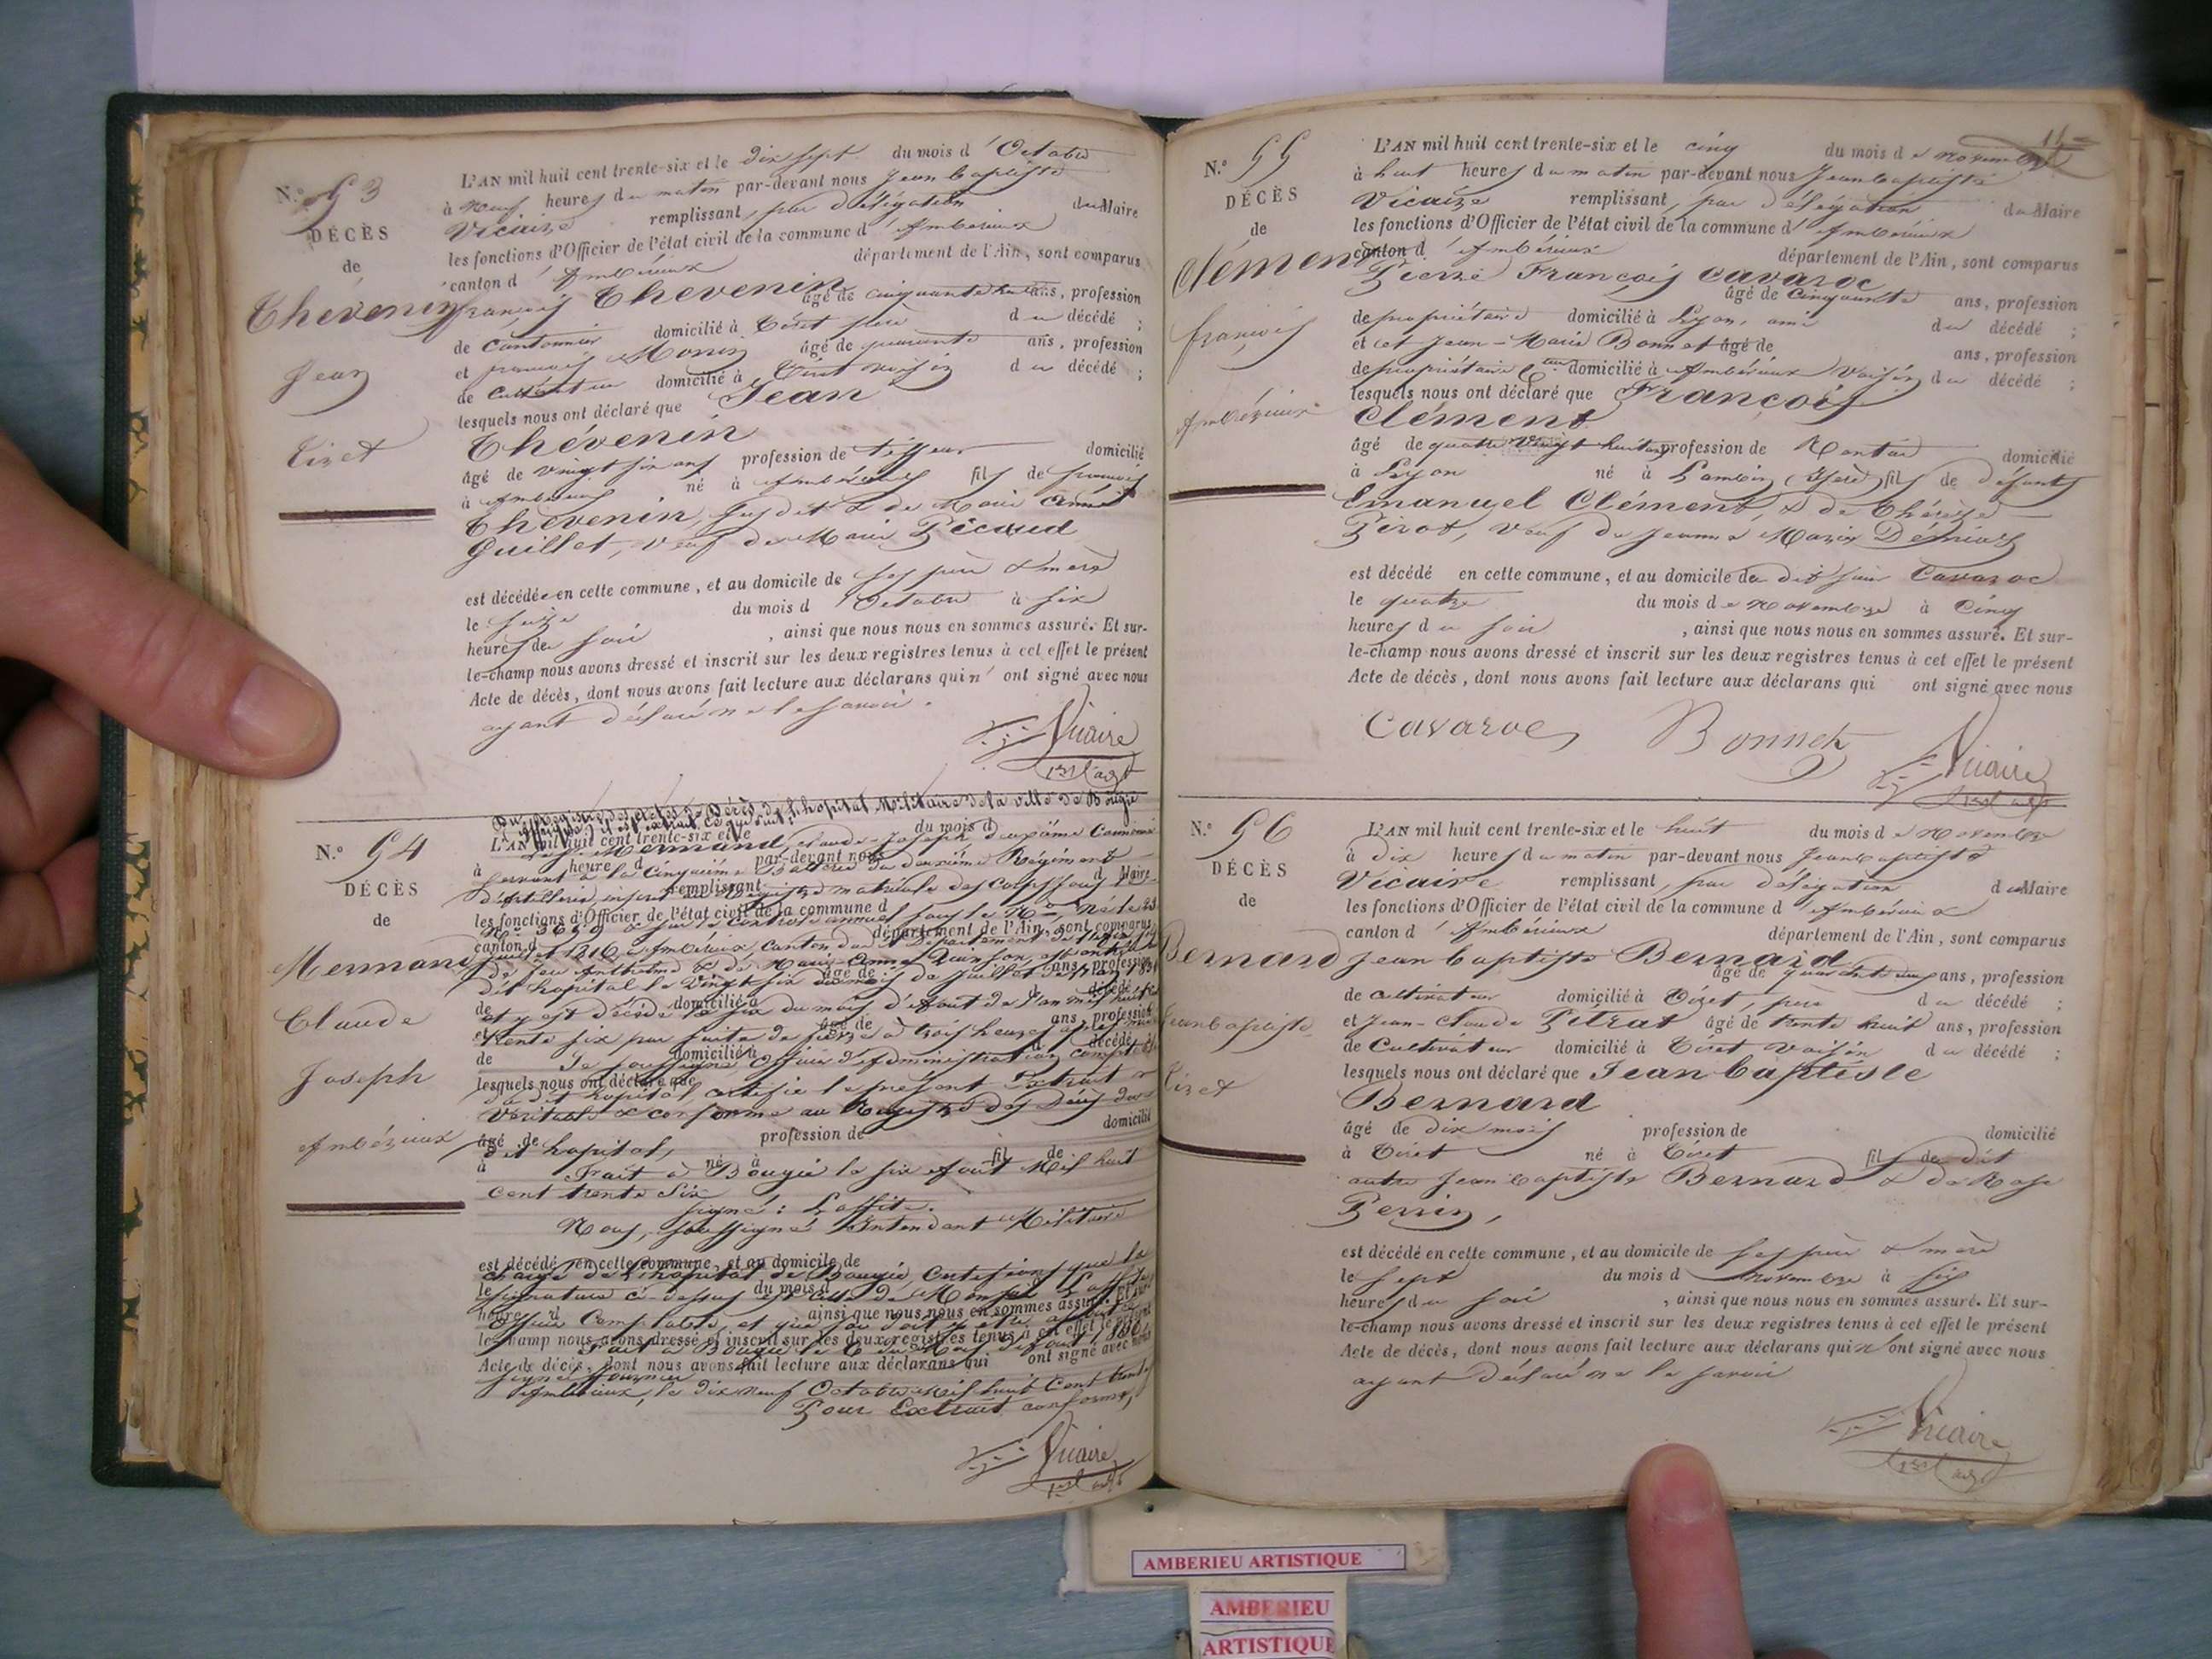 N.° 53
DÉCÈS
de
Thévenin
Jean
Tiret
L'AN mil huit cent trente-six et le dix sept du mois d'Octobre
à neuf heures du matin par-devant nous Jean Baptiste
Vicaire remplissant, par délégation du Maire
les fonctions d'Officier de l'état civil de la commune d'Ambérieux
canton d'Ambérieux département de l'Ain, sont comparus
françois Thevenin âgé de cinquante huit ans, profession
de Cantonnier domicilié à Tiret père du décédé ;
et françois Monin âgé de quarante ans, profession
de Cultivateur domicilié à Tiret voisin du décédé ;
lesquels nous ont déclaré que Jean
Thévenin
âgé de vingt six ans profession de tisseur domicilié
à Ambérieux né à Ambérieux fils de françois
Thevenin, susdit & de Marie Anne
Guillet, veuf de Marie Picaud
est décédé en cette commune, et au domicile de ses père & mère
le seize du mois d'Octobre à six
heures du soir, ainsi que nous nous en sommes assuré. Et sur-
le-champ nous avons dressé et inscrit sur les deux registres tenus à cet effet le présent
Acte de décès, dont nous avons fait lecture aux déclarans qui n'ont signé avec nous
ayant déclaré ne le savoir.
Vicaire
N.° 54
DÉCÈS
de
Mermand
Claude
Joseph
Ambérieux
Du Registre des actes de Décès de l'hopital Militaire de la ville de Bougie
L'AN mil huit cent trente-six et le du mois d
Mermand, Claude-Joseph, deuxième Canonnier
à heure d par-devant nous
servant à la Cinquième Batterie du deuxième Régiment
remplissant d Maire
d'Artillerie, inscrit au Registre matricule des Corps sous le
les fonctions d'Officier de l'état civil de la commune d
canton d département de l'Ain, sont comparus
juillet 1810, à Ambérieux, Canton dudit Département de l'Ain
de feu Anthelme & de Marie-Anne
âgé de ans, profession
dit hopital le vingt six du mois de juillet
de domicilié à d décédé ;
et y est décédé le six du mois d'Aout de l'an mil huit cent
et âgé de ans, profession
trente six par suite de fièvre à trois heures
de domicilié à d décédé ;
Je soussigné Officier d'Administration comptable
lesquels nous ont déclaré que
du dit hopital, certifie le présent Extrait
véritable & conforme au Registre des Décès du
âgé de profession de domicilié
dit hopital,
à né à fil de
Fait à Bougie le six Aout Mil huit
cent trente Six
signé : Laffite.
Nous, soussigné Intendant Militaire
est décédé en cette commune, et au domicile de
chargé de l'hopital de Bougie Certifions que la
le du mois d
signature ci-dessus est celle de Monsieur Laffite
heure d, ainsi que nous nous en sommes assuré. Et sur-
Officier Comptable, et que foi doit y être
le-champ nous avons dressé et inscrit sur les deux registres tenus à cet effet le présent
Fait à Bougie le 6 du Mois d'Aout 1836
Acte de décès, dont nous avons fait lecture aux déclarans qui ont signé avec nous
Signé Fournier
Ambérieux, le dix neuf Octobre Mil huit Cent trente
Pour Extrait conforme,
Vicaire
N.° 55
DÉCÈS
de
Clément
françois
Ambérieux
L'AN mil huit cent trente-six et le cinq du mois de Novembre
à huit heures du matin par-devant nous Jean baptiste
Vicaire remplissant, par délégation du Maire
les fonctions d'Officier de l'état civil de la commune d'Ambérieux
canton d'Ambérieux département de l'Ain, sont comparus
Pierre François Cavaroc âgé de Cinquante ans, profession
de propriétaire domicilié à Lyon, ami du décédé ;
et et Jean-Marie Bonnet âgé de ans, profession
de propriétaire domicilié à Ambérieux voisin du décédé ;
lesquels nous ont déclaré que François
Clément
âgé de quatre vingt huit ans profession de Rentier domicilié
à Lyon né à (Isère) fils de défunts
Emanuel Clément, & de Thérèse
Pirot, veuf de Jeanne Marie
est décédé en cette commune, et au domicile du dit sieur Cavaroc
le quatre du mois de Novembre à Cinq
heures du soir, ainsi que nous nous en sommes assuré. Et sur-
le-champ nous avons dressé et inscrit sur les deux registres tenus à cet effet le présent
Acte de décès, dont nous avons fait lecture aux déclarans qui ont signé avec nous
Cavaroc Bonnet Vicaire
N.° 56
DÉCÈS
de
Bernard
Jean baptiste
Tiret
L'AN mil huit cent trente-six et le huit du mois de Novembre
à dix heures du matin par-devant nous Jean baptiste
Vicaire remplissant, par délégation du Maire
les fonctions d'Officier de l'état civil de la commune d'Ambérieux
canton d'Ambérieux département de l'Ain, sont comparus
Jean baptiste Bernard âgé de quarante deux ans, profession
de cultivateur domicilié à Tiret, père du décédé ;
et Jean-Claude Pitrat âgé de trente huit ans, profession
de Cultivateur domicilié à Tiret voisin du décédé ;
lesquels nous ont déclaré que Jean baptiste
Bernard
âgé de dix mois profession de domicilié
à Tiret né à Tiret fils de dit
autre Jean baptiste Bernard & de Rose
Perrin,
est décédé en cette commune, et au domicile de ses père & mère
le sept du mois d novembre à six
heures du soir, ainsi que nous nous en sommes assuré. Et sur-
le-champ nous avons dressé et inscrit sur les deux registres tenus à cet effet le présent
Acte de décès, dont nous avons fait lecture aux déclarans qui n'ont signé avec nous
ayant déclaré ne le savoir
Vicaire
AMBERIEU ARTISTIQUE
AMBERIEU
ARTISTIQUE